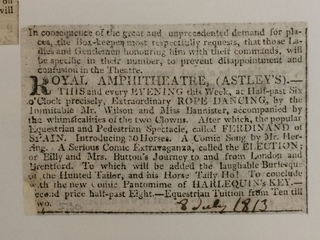 In consequence of the great and unprecedented demand for pla-
ces, the Box-keeper most respectfully requests, that those La-
dies and Gentlemen honouring him with their commands, will
be specific in their number, to prevent disappointment and
confusion in the Theatre.
ROYAL AMPHITHEATRE, (ASTLEY'S).—
THIS and every EVENING this Week, at Half-past Six
o'Clock precisely, Extraordinary ROPE DANCING, by the
Inimitable Mr. Wilson and Miss Bannister, accompanied by
the whimsicalities of the two Clowns. After which, the popular
Equestrian and Pedestrian Spectacle, called FERDINAND of
SPAIN. Introducing 30 Horses. A Comic Song by Mr. Her-
ring. A Serious Comic Extravaganza, called the ELECTION;
or Billy and Mrs. Button's Journey to and from London and
Brentford. To which will be added the laughable Burlesque
of the Hunted Tailor, and his Horse Tally Ho! To conclude
with the new Comic Pantomime of HARLEQUIN'S KEY.—
Second price half-past Eight.—Equestrian Tuition from Ten till
Two.
8 July 1813
will